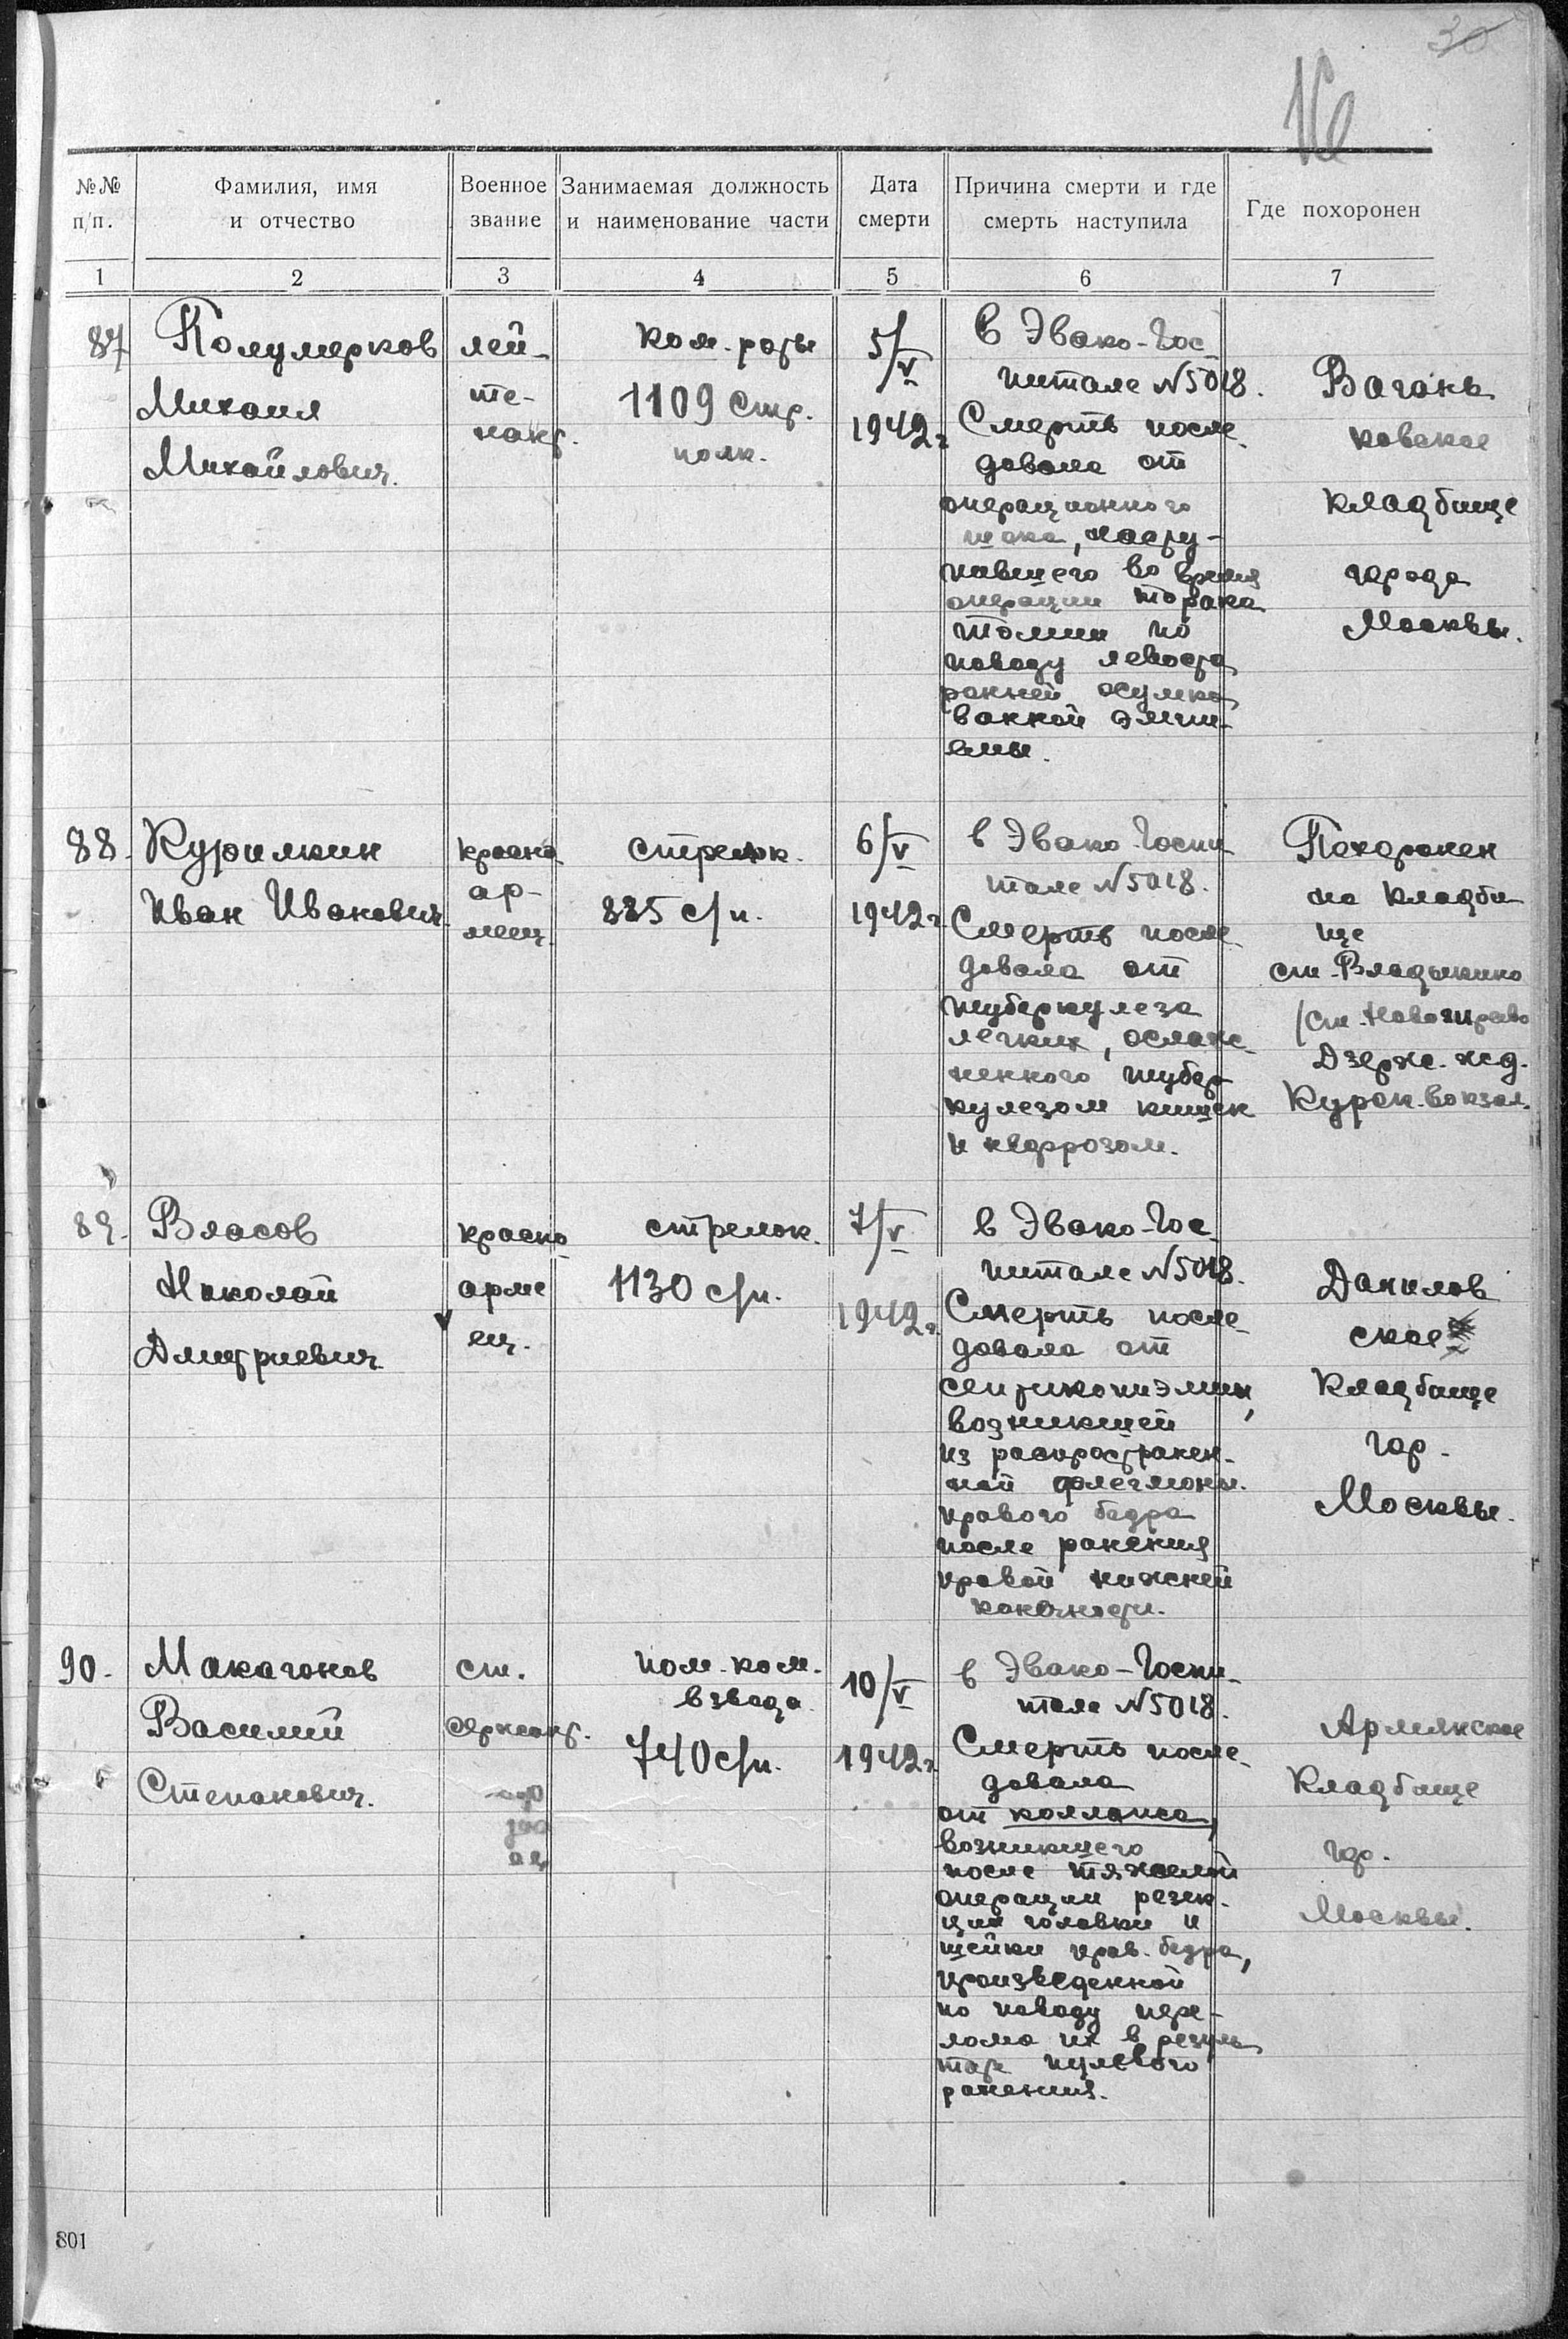 30
16
№№ п/п. Фамилия, имя и отчество Военное звание Занимаемая должность и наименование части Дата смерти Причина смерти и где смерть наступила Где похоронен
1 2 3 4 5 6 7
87 Полумерков
Михаил
Михайлович.
лей-
те-
нант.
Ком. роты
1109 стр.
полк.
5/V
1942г.
в Эвако-Гос-
питале №5018.
Смерть после-
довала от
операционного
шока, насту-
пившего во время
операции торако
томии по
поводу левосто
ронней осумко-
ванной эмпи-
емы.
Вагань
ковское
кладбище
города
Москвы.
88. Курилкин
Иван Иванович.
красно
ар-
меец.
стрелок.
885 с/п.
6/V
1942г.
в Эвако-Госпи
тале №5018.
Смерть после-
довала от
туберкулеза
легких, ослож-
ненного тубер
кулезом кишек
и нефрозом.
Похоронен
на кладби
ще
ст. Владыкино
Дзерж. ж.д.
Курск. вокзал.
89. Власов
Николай
Дмитриевич
красно
арме
ец.
стрелок.
1130 с/п.
7/V
1942г.
в Эвако-Гос-
питале №5018.
Смерть после-
довала от
септикопиэмии,
возникшей
из распространен-
ной флегмоны.
правого бедра
после ранения
правой нижней
конечности.
Данилов
ское
кладбище
гор.
Москвы.
90. Макагонов
Василий
Степанович.
ст.
сержант.
пом. ком.
взвода
740 с/п.
10/V
1942г.
в Эвако-Госпи-
тале №5018.
Смерть после-
довала
от коллапса,
возникшего
после тяжелой
операции резек-
ции головки и
шейки прав. бедра,
произведенной
по поводу пере-
лома их в резуль
тате пулевого
ранения.
Армянское
кладбище
гор.
Москвы.
801